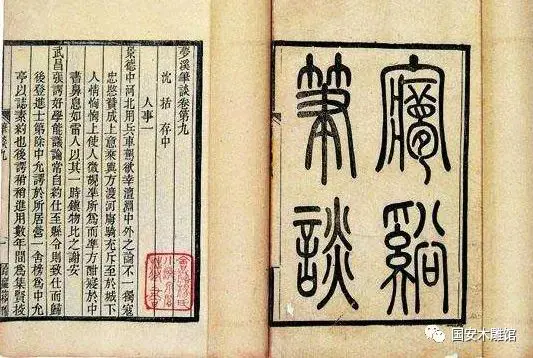 㝱谿
筆談
夢溪筆談卷第九
沈括存中
人事一
景德中河北用兵車駕欲幸澶淵中外之論不一獨寇
忠愍贊成上意乘輿方渡河虜騎充斥至於城下
人情恟恟上使人微覘準所爲而準方酣寢於中
書鼻息如雷人以其一時鎮物比之謝安
武昌張諤好學能議論常自約仕至縣令則致仕而歸
後登進士第除中允諤於所居營一舍榜爲中允
亭以誌素約也後諤稍稍進用數年間爲集賢校
筆談九
国安木雕馆